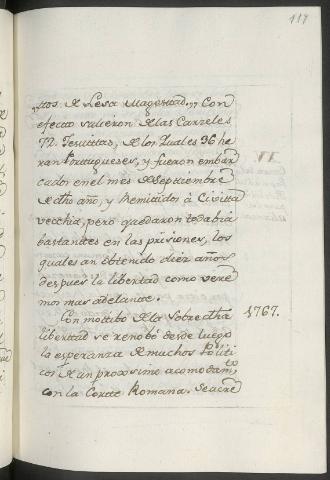 117
„ttos de Lesa Magestad„ Con
efecto salieron de las Carzeles
72. Jesuitas, de los quales 36 he
ran Portugueses, y fueron embar
cados en el mes de Septiembre
de dho año, y Remitidos à Civitta
vecchia, pero quedaron todabia
bastantes en las prisiones, los
quales an obtenido diez años
despues la libertad como vere
mos mas adelante.
Con mottibo de la Sobredha 1767.
libertad se renobó desde luego
la esperanza de muchos Politi
cos de un proximo acomodamto
con la Corte Romana. Se acre